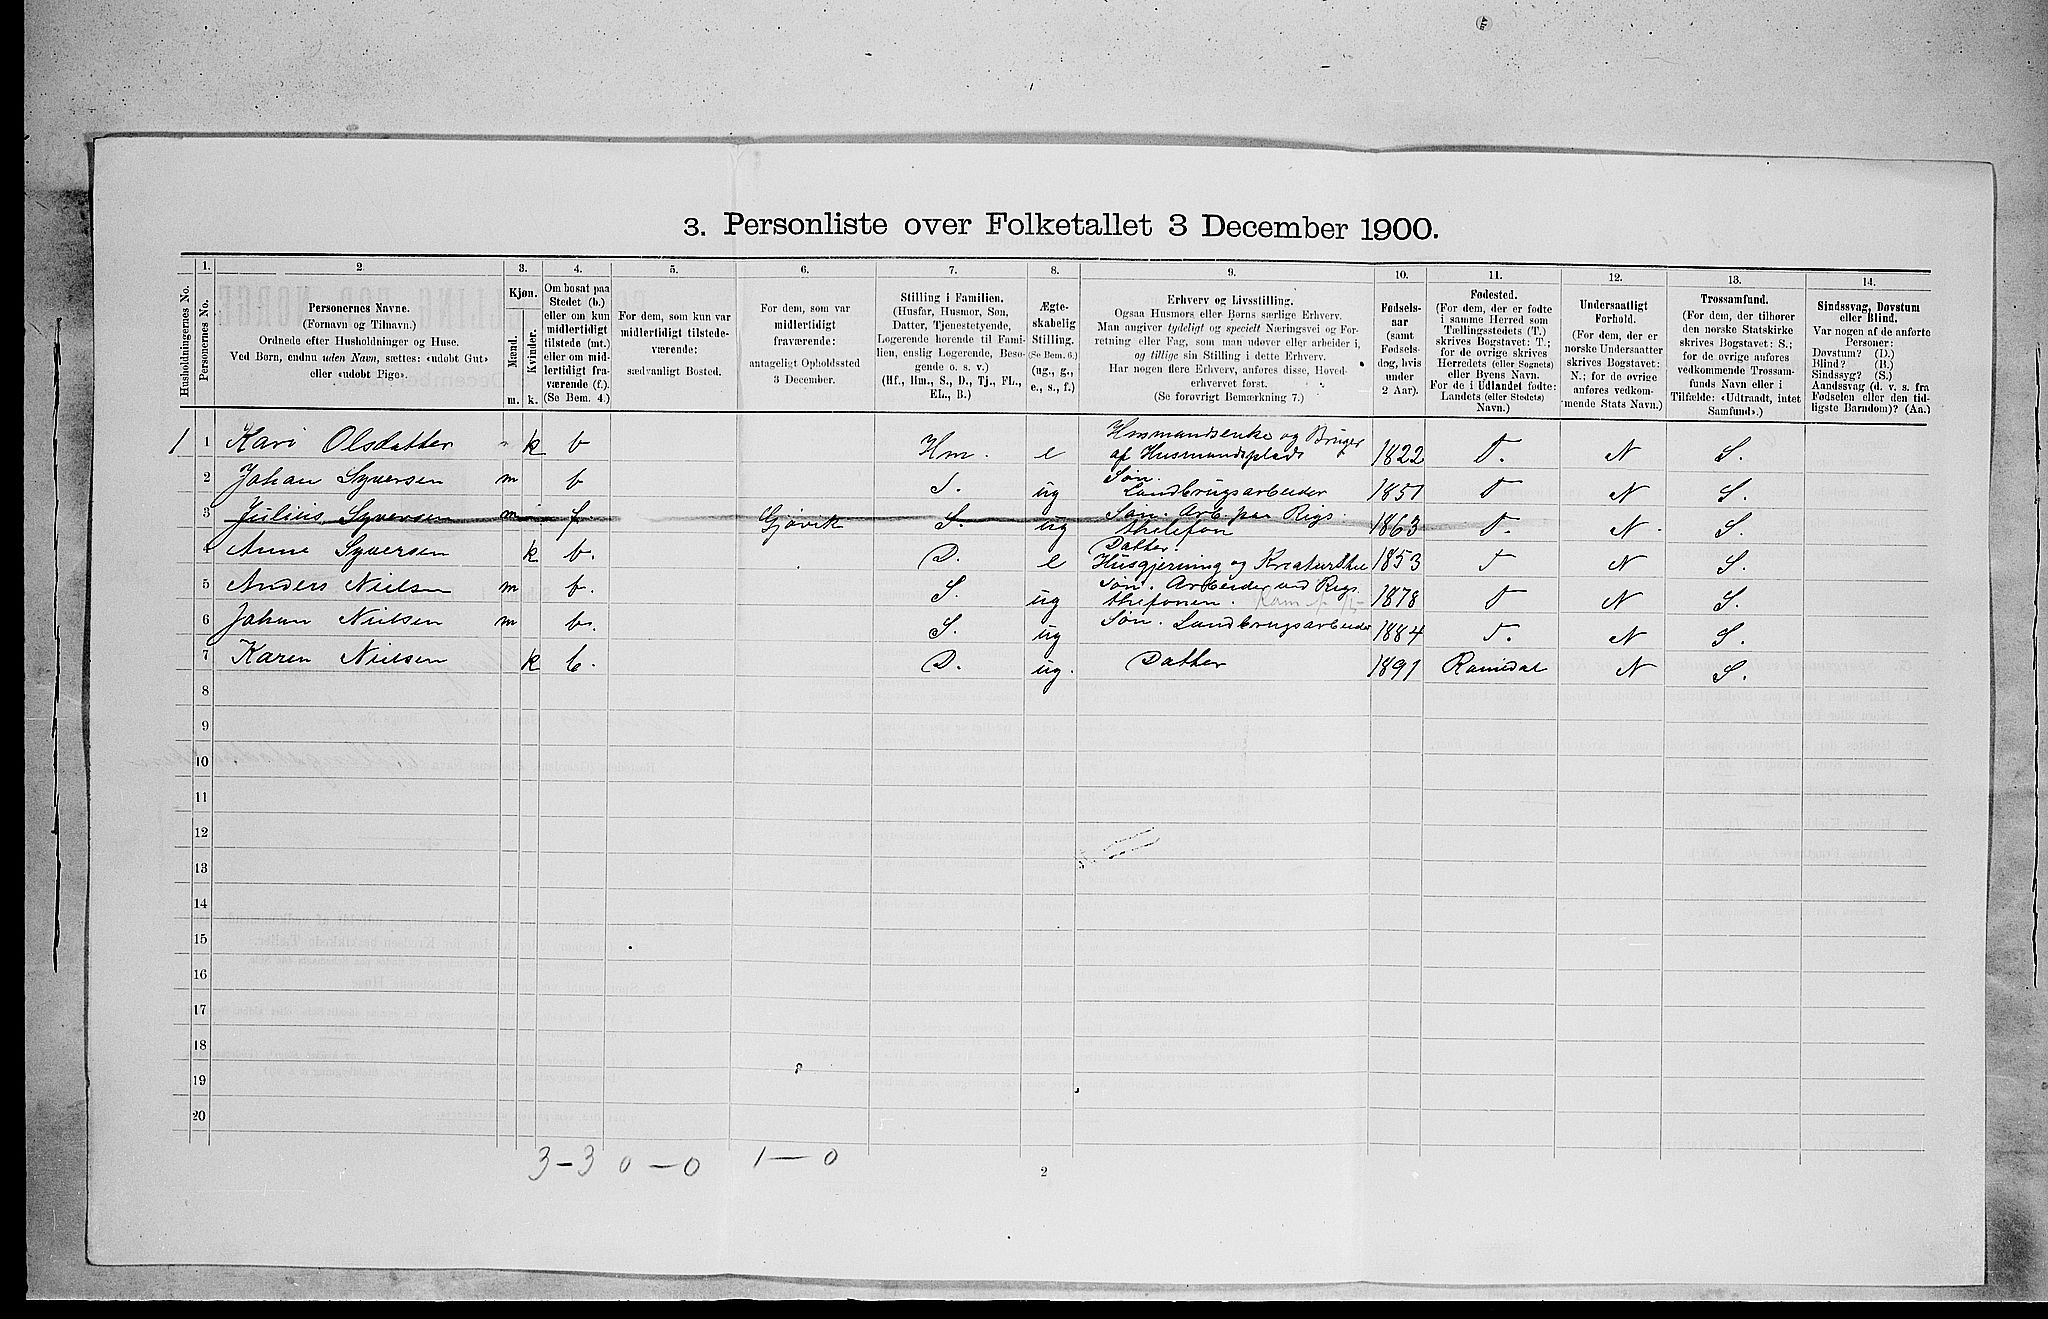 3. Personliste over Folketallet 3 December 1900.
Husholdningernes No.
1.
Personernes No.
2.
Personernes Navne.
(Fornavn og Tilnavn.)
Ordnede efter Husholdninger og Huse.
Ved Børn, endnu uden Navn, sættes: «udøbt Gut»
eller «udøbt Pige».
3.
Kjøn.
Mænd.
Kvinder.
m.
k.
4.
Om bosat paa
Stedet (b.)
eller om kun
midlertidigt
tilstede (mt.)
eller om mid-
lertidigt fra-
værende (f.)
(Se Bem. 4.)
5.
For dem, som kun var
midlertidigt tilstede-
værende:
sædvanligt Bosted.
6.
For dem, som var
midlertidigt
fraværende:
antageligt Opholdssted
3 December.
7.
Stilling i Familien.
(Husfar, Husmor, Søn,
Datter, Tjenestetyende,
Logerende hørende til Fami-
lien, enslig Logerende, Besø-
gende o. s. v.)
(Hf., Hm., S., D., Tj., FL.,
EL., B.)
8.
Ægte-
skabelig
Stilling.
(Se Bem. 6.)
(ug., g.,
e., s., f.)
9.
Erhverv og Livsstilling.
Ogsaa Husmors eller Børns særlige Erhverv.
Man angiver tydeligt og specielt Næringsvei og For-
retning eller Fag, som man udøver eller arbeider i,
og tillige sin Stilling i dette Erhverv.
Har nogen flere Erhverv, anføres disse, Hoved-
erhvervet først.
(Se forøvrigt Bemærkning 7.)
10.
Fødsels-
aar
(samt
Fødsels-
dag, hvis
under
2 Aar).
11.
Fødested.
(For dem, der er fødte
i samme Herred som
Tællingsstedets (T.)
skrives Bogstavet: T.;
for de øvrige skrives
Herredets (eller Sognets)
eller Byens Navn.
For de i Udlandet fødte:
Landets (eller Stedets)
Navn.)
12.
Undersaatligt
Forhold.
(For dem, der er
norske Undersaatter
skrives Bogstavet:
N.; for de øvrige
anføres vedkom-
mende Stats Navn.)
13.
Trossamfund.
(For dem, der tilhører
den norske Statskirke
skrives Bogstavet: S.;
for de øvrige anføres
vedkommende Trossam-
funds Navn eller i
Tilfælde: «Udtraadt, intet
Samfund».)
14.
Sindssvag, Døvstum
eller Blind.
Var nogen af de anførte
Personer:
Døvstum? (D.)
Blind? (B.)
Sindssyg? (S.)
Aandssvag (d. v. s. fra
Fødselen eller den tid-
ligste Barndom)? (Aa.)
1 1 Kari Olsdatter - k b Hm. e Husmandsenke og Bruger af Husmandsplads 1822 T. N S.
2 Johan Syversen m b S. ug Søn. Landbrugsarbeider 1851 T N S.
3 Julius Syversen m f Gjøvik S. ug Søn. Arb. paa Rigs thelefon 1863 T. N. S.
4 Anne Syversen k b. D. e Datter. Husgjerning og Kreaturstel 1853 T N S.
5 Anders Nielsen m b. S. ug Søn. Arbeider ved Rigs. thefonen. 1878 T N S.
6 Johan Nielsen m b. S. ug Søn. Landbrugsarbeider 1884 T. N S.
7 Karen Nielsen k b. D. ug. Datter 1891 Romedal N S.
8
9
10
11
12
13
14
15
16
17
18
19
20
3-3 0-0 1-0
2